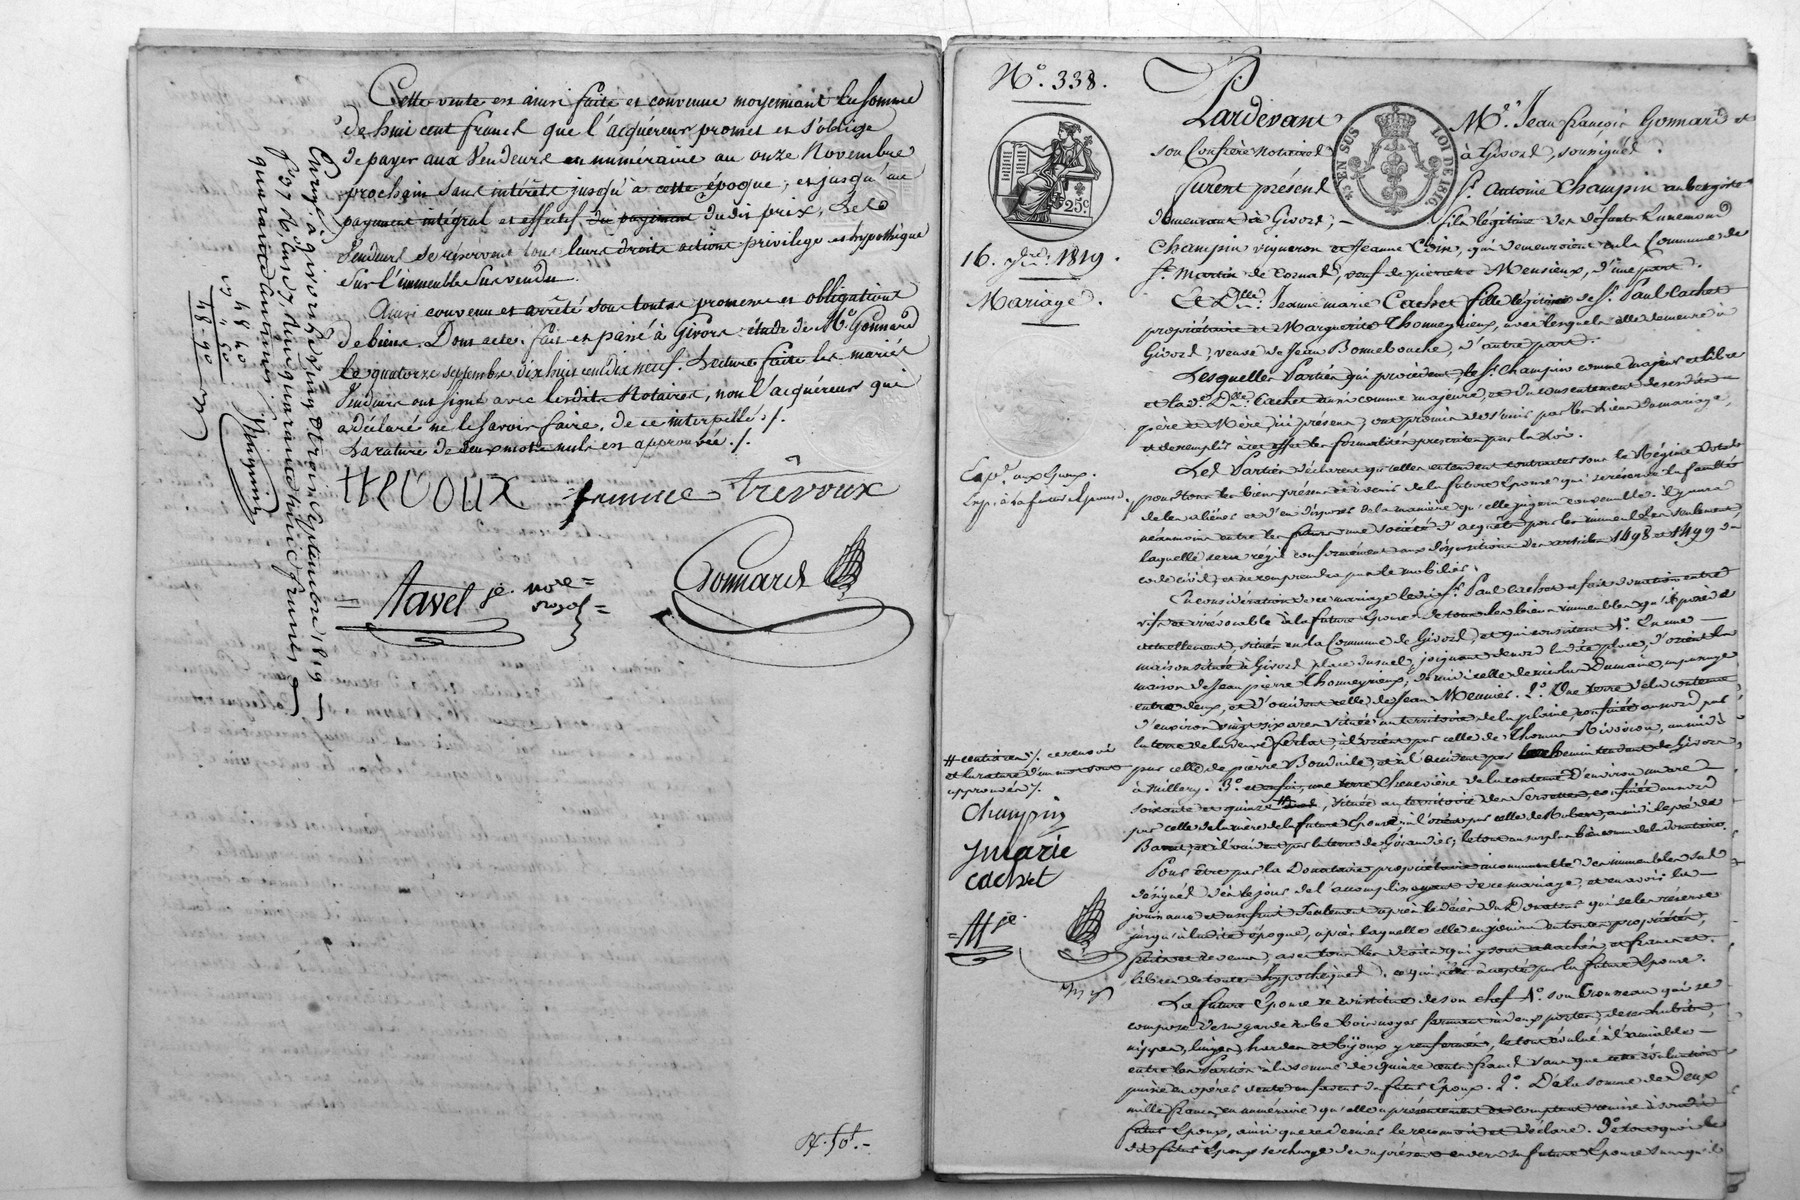 Cette vente est ainsi faite et convenue moyennant la somme
de huit cent francs que l'acquéreur promet et s'oblige
de payer aux Vendeurs en numéraire au onze Novembre
prochain sans intérêts jusqu'à cette époque, et jusqu'au
payement intégral et effectif du payement du dit prix, Les
Vendeurs se réservent tous leurs droits actions privilège et hypothèque
sur l'immeuble sus vendu
Ainsi convenu et arrêté sous toutes promesses et obligations
de biens. Dont acte: fait et passé à Givors étude de Me. Gonnard
le quatorze septembre dix huit cent dix neuf. Lecture faite les mariés
Vendeurs ont signé avec lesdits Notaires, non l'acquéreur qui
a déclaré ne le savoir faire, de ce interpellé ./.
La rature de deux mots nuls est approuvée ./.
trevoux femme trêvoux
Tavel je. nore
royal
Gonnard
Enregé. à givors le vingt et trois septembre 1819
quarante centimes
44 40
4 50
48.90
N°. 338.
25c
16. 7bre. 1819.
Mariage.
Pardevant Me. Jean françois Gonnard et
son Confrère Notaires à Givors, soussignés.
EN SUS LOI DE 1816
furent présents Sr. Antoine Champin aubergiste
demeurant à Givors; fils légitime des défunts Ennemond
Champin vigneron et Jeanne Coin, qui demeuroient en la Commune de
St. Martin de Cornas, veuf de pierrette Mensieux, d'une part.
Et Dlle. Jeanne marie Cachet fille légitime de Sr. Paul Cachet
propriétaire et Marguerite Thonneyrieux, avec lesquels elle demeure à
Givors, veuve de Jean Bonnebouche, d'autre part.
Lesquelles Parties qui procèdent, le Sr. Champin comme majeur et libre
et la de. Dlle. Cachet aussi comme majeure, et du consentement de ses dits
père et Mère, ici présens, ont promis de s'unir par les liens du mariage,
et de remplir à cet effet les formalités prescrites par la loi.
Les Parties déclarent qu'elles entendent contracter sous le Régime Dotal
pour tous les biens présens et à venir de la future Epouse qui se réserve la faculté
de les aliéner et d'en disposer de la manière qu'elle jugera convenable. il y aura
néanmoins entre les futurs une société d'acquêts pour les immeubles seulement,
laquelle sera régie conformément aux dispositions des articles 1498 et 1499 du
code civil, et ne comprendra pas le mobilier.
En considération de ce mariage ledit Sr. Paul Cachet a fait donation entre
vifs et irrévocable à la future Epouse de tous les biens immeubles qu'il possède
actuellement, situés en la Commune de Givors, et qui consistent 1°. En une
maison située à Givors place Susnel, joignant de nord ladite place, d'orient la
maison de Jean pierre Thonneyrieux, de midi celle de nicolas Dumaine, un passage
entre deux, et d'occident celle de Jean Meunier. 2°. Une terre de la contenue
d'environ vingt six ares située au territoire de la plaine, confinée au nord par
la terre de la veuve ferlat, à l'orient par celle de Thomas Rivoiron, au midi
par celle de pierre Bouduile, et à l'occident par le chemin tendant de Givors
à Millery. 3°. et enfin, une terre Chenevière de la contenue d'environ un are
soixante et quinze, située au territoire des Servettes, confinée au nord
par celle de la mère de la future Epouse, à l'orient par celle de Robert, au midi le pré de
Pour être par la Donataire propriétaire incommutable des immeubles sus
désignés dès le jour de l'accomplissement de ce mariage, et en avoir la
jouissance et usufruit seulement après le décès du Donateur qui se les réserve
jusqu'à ladite époque, après laquelle elle en jouira en toute propriété,
fruits et revenus, avec tous les droits qui y sont attachés et francs et
libres de toutes hypothèques. ce qui a été accepté par la future Epouse.
La future Epouse se constitue de son chef 1°. son trousseau qui se
compose d'une garde robe bois noyer fermant à deux portes, de ses habits,
nippes, linges, hardes et bijoux y renfermés, le tout évalué à l'amiable
entre les Parties à la somme de quinze cents francs sans que cette évaluation
puisse en opérer vente en faveur du futur Epoux. 2°. De la somme de Deux
mille francs en numéraire qu'elle a présentement et comptant remise à son dit
futur Epoux, ainsi que ce dernier le reconnoit et déclare. De tout quoi le
dit futur Epoux se charge dès à présent envers sa future Epouse
Expd. aux Epoux.
centiares /. ce renvoi
et la rature d'un mot sont
approuvés /.
Champin
jmarie
cachet